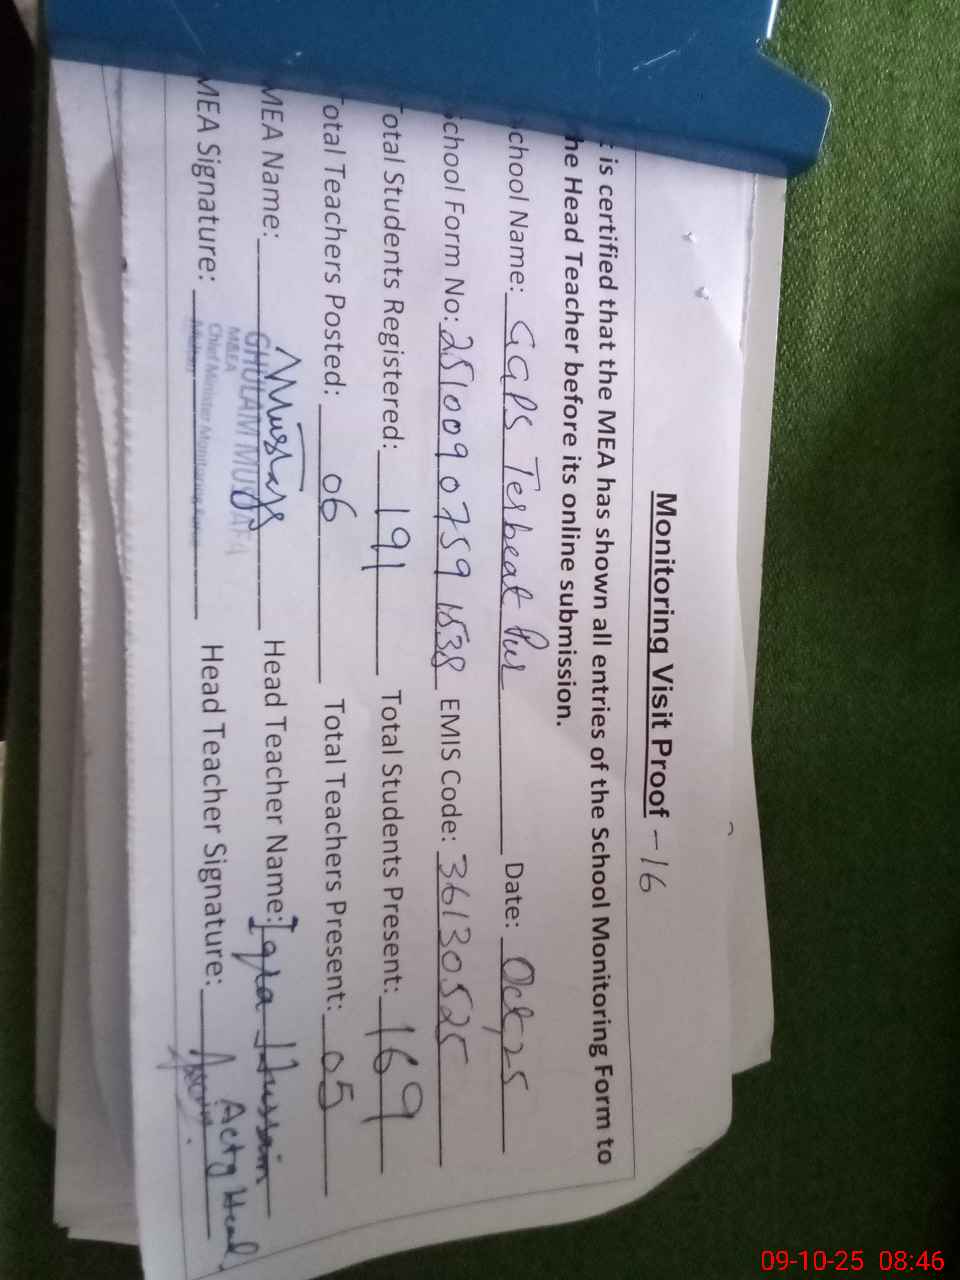 Monitoring Visit Proof -16
is certified that the MEA has shown all entries of the School Monitoring Form to
he Head Teacher before its online submission.
chool Name: GGPS Date: Oct, 25
chool Form No: 25100907591538 EMIS Code: 36130525
otal Students Registered: 191 Total Students Present: 169
otal Teachers Posted: 06 Total Teachers Present: 05
MEA Name: Head Teacher Name: Iqra Hussain
MEA Signature: Head Teacher Signature: Actg Head
GHULAM MUSTAFA
M&EA
Chief Minister Monitoring Force
Multan
09-10-25 08:46